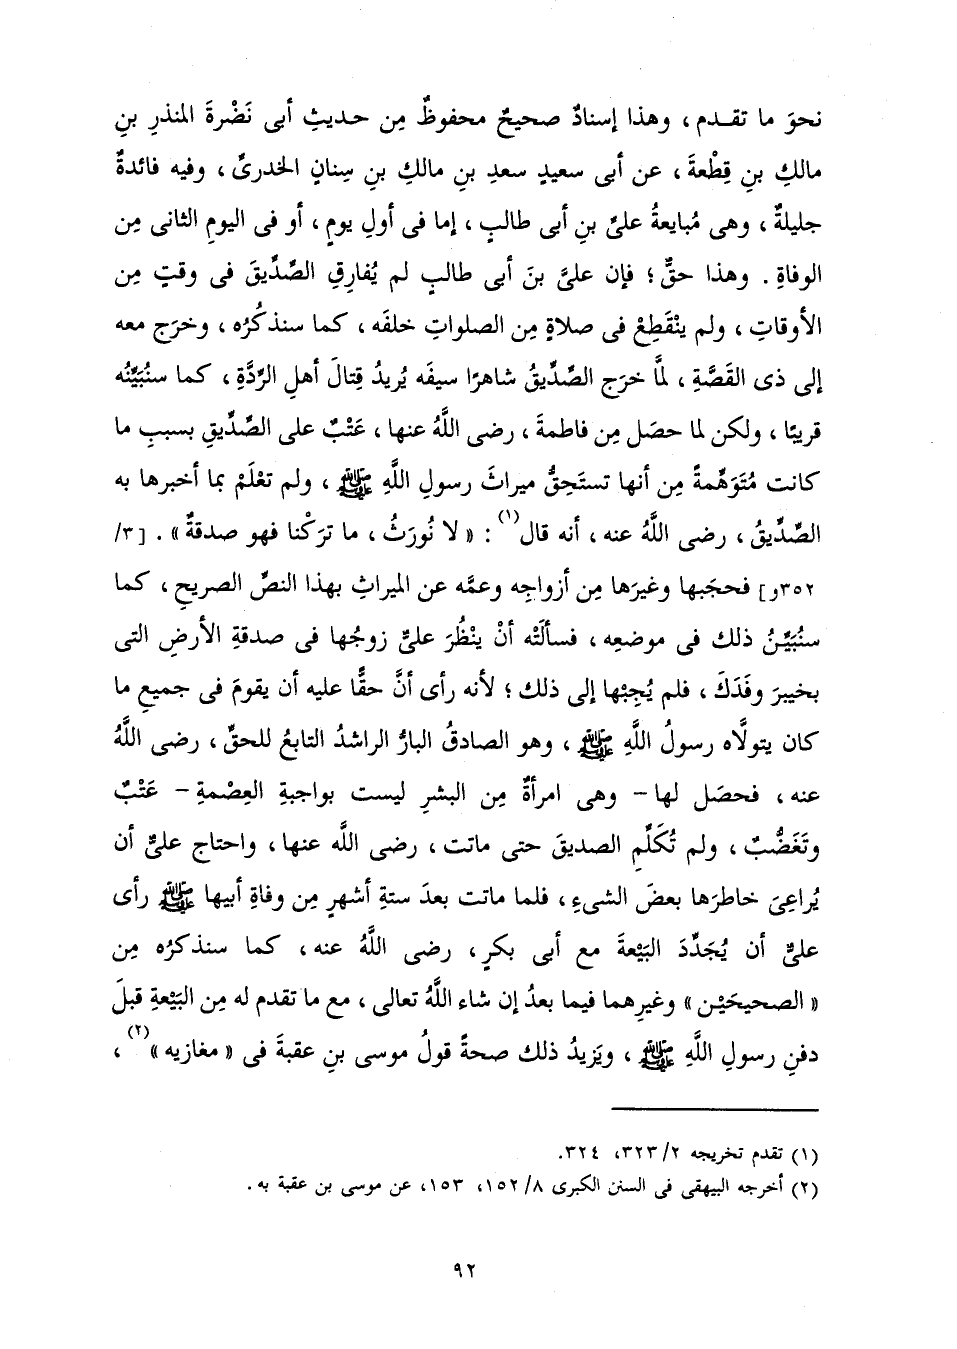 نحوَ ما تقـدم ، وهذا إسنادٌ صحيحٌ محفوظٌ مِن حديثِ أبى نَضْرةَ المنذرِ بنِ
مالكِ بنِ قِطْعةَ ، عن أبى سعيدٍ سعدِ بنِ مالكِ بنِ سِنانٍ الخدرىِّ ، وفيه فائدةٌ
جليلةٌ ، وهى مُبايعةُ علىِّ بنِ أبى طالبٍ ، إما فى أولِ يومٍ ، أو فى اليومِ الثانى مِن
الوفاةِ . وهذا حقٌّ ؛ فإن علىَّ بنَ أبى طالبٍ لم يُفارقِ الصِّدِّيقَ فى وقتٍ مِن
الأوقاتِ ، ولم ينْقَطِعْ فى صلاةٍ مِن الصلواتِ خلفَه ، كما سنذكُرُه ، وخرَج معه
إلى ذى القَصَّةِ ، لمَّا خرَج الصِّدِّيقُ شاهرًا سيفَه يُريدُ قِتالَ أهلِ الرِّدَّةِ ، كما سنُبَيِّنُه
قريبًا ، ولكن لما حصَل مِن فاطمةَ ، رضى اللَّهُ عنها ، عَتْبٌ على الصِّدِّيقِ بسببِ ما
كانت مُتَوَهِّمةً مِن أنها تستَحِقُّ ميراثَ رسولِ اللَّهِ ﷺ ، ولم تعْلَمْ بما أخبرها به
الصِّدِّيقُ ، رضى اللَّهُ عنه ، أنه قال(١) : « لا نُورَثُ ، ما ترَكْنا فهو صدقةٌ » . [٣/
٣٥٢و] فحجَبها وغيرَها مِن أزواجِه وعمَّه عن الميراثِ بهذا النصِّ الصريحِ ، كما
سنُبَيِّـنُ ذلك فى موضعِه ، فسألَتْه أنْ ينْظُرَ علىٌّ زوجُها فى صدقةِ الأرضِ التى
بخيبرَ وفَدَكَ ، فلم يُجِبْها إلى ذلك ؛ لأنه رأى أنَّ حقًّا عليه أن يقومَ فى جميعِ ما
كان يتولَّاه رسولُ اللَّهِ ﷺ ، وهو الصادقُ البارُّ الراشدُ التابعُ للحقِّ ، رضى اللَّهُ
عنه ، فحصَل لها - وهى امرأةٌ مِن البشرِ ليست بواجبةِ العِصْمةِ - عَتْبٌ
وتَغَضُّبٌ ، ولم تُكَلِّمِ الصديقَ حتى ماتت ، رضى اللَّه عنها ، واحتاج علىٌّ أن
يُراعِىَ خاطرَها بعضَ الشىءِ ، فلما ماتت بعدَ ستةِ أشهرٍ مِن وفاةِ أبيها ﷺ رأى
علىٌّ أن يُجَدِّدَ البَيْعةَ مع أبى بكرٍ ، رضى اللَّهُ عنه ، كما سنذكرُه مِن
« الصحيحَيْن » وغيرِهما فيما بعدُ إن شاء اللَّهُ تعالى ، مع ما تقدم له مِن البَيْعةِ قبلَ
دفنِ رسولِ اللَّهِ ﷺ ، ويَزيدُ ذلك صحةً قولُ موسى بنِ عقبةَ فى « مغازيه »(٢) ،
(١) تقدم تخريجه ٢/ ٣٢٣، ٣٢٤.
(٢) أخرجه البيهقى فى السنن الكبرى ٨/ ١٥٢، ١٥٣، عن موسى بن عقبة به .
٩٢